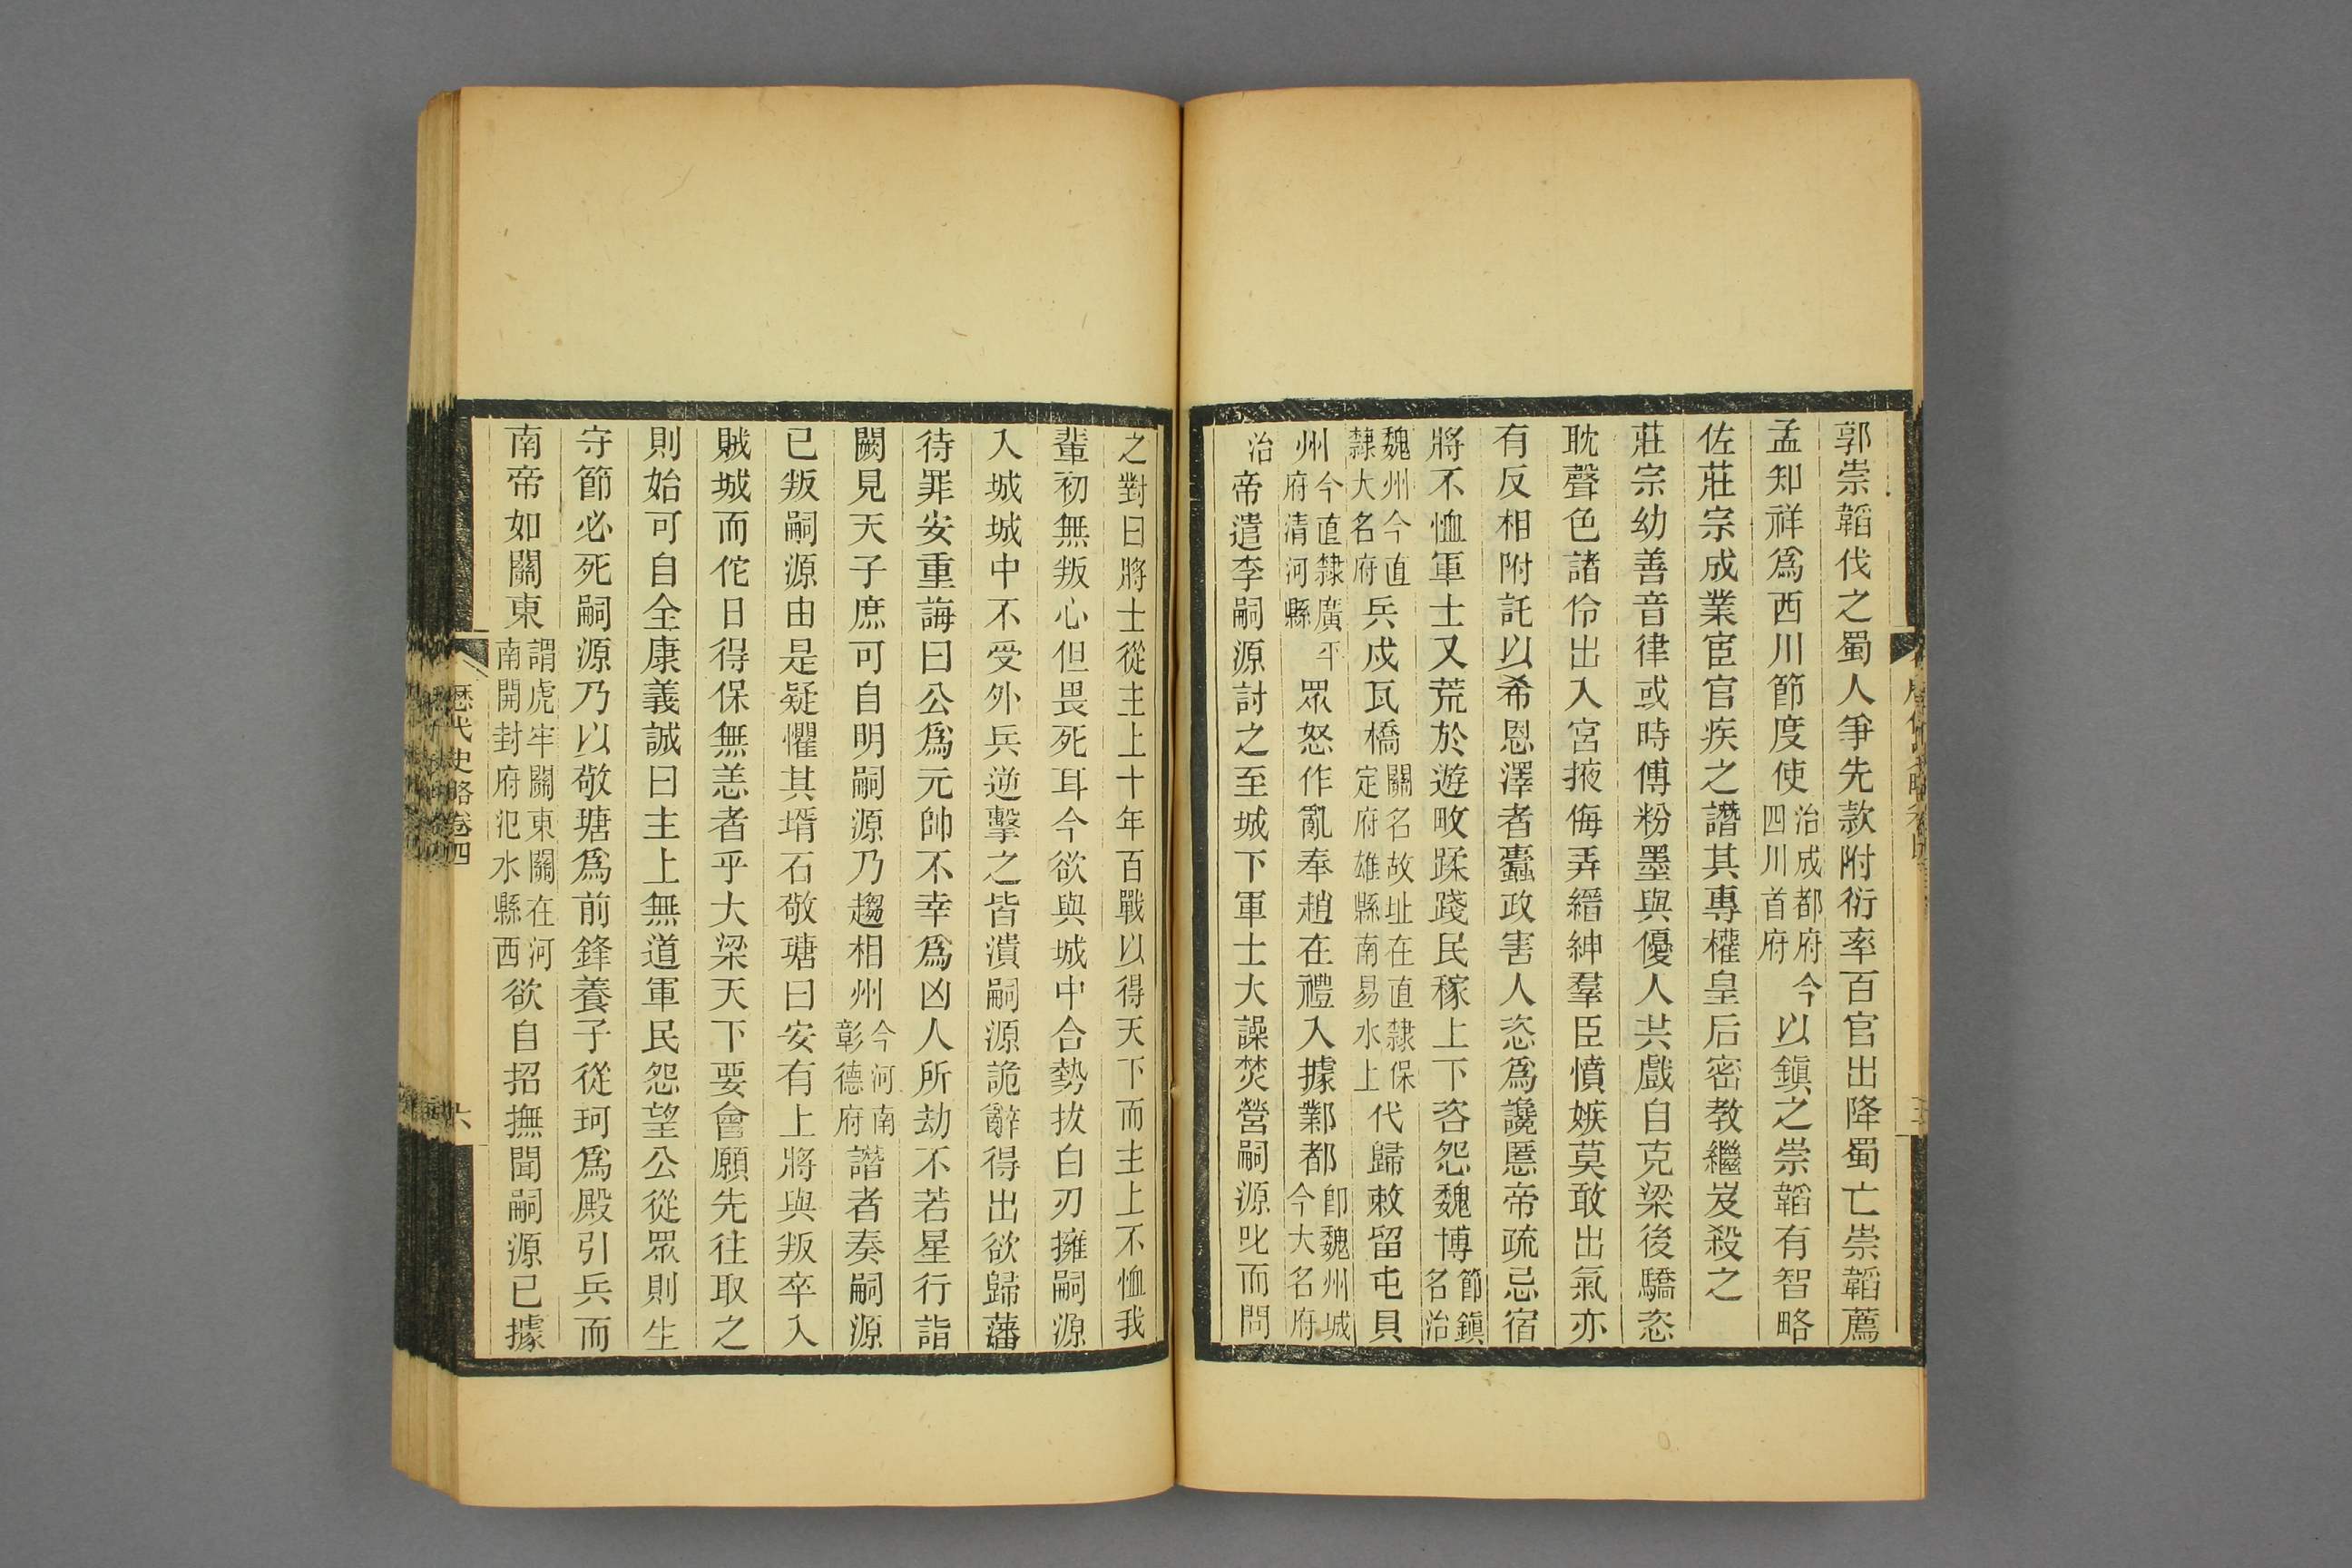 郭崇韜伐之蜀人爭先款附衍率百官出降蜀亡崇韜薦
孟知祥爲西川節度使治成都府今四川首府以鎭之崇韜有智略
佐莊宗成業宦官疾之譖其專權皇后密教繼岌殺之
莊宗幼善音律或時傅粉墨與優人共戲自克梁後驕恣
耽聲色諸伶出入宮掖侮弄縉紳羣臣憤嫉莫敢出氣亦
有反相附託以希恩澤者蠹政害人恣爲讒慝帝疏忌宿
將不恤軍士又荒於遊畋蹂踐民稼上下咨怨魏博節鎭名治
魏州今直隸大名府兵戍瓦橋關名故址在直隸保定府雄縣南易水上代歸敕留屯貝
州今直隸廣平府清河縣眾怒作亂奉趙在禮入據鄴都卽魏州城今大名府
治帝遣李嗣源討之至城下軍士大譟焚營嗣源叱而問
之對曰將士從主上十年百戰以得天下而主上不恤我
輩初無叛心但畏死耳今欲與城中合勢拔白刃擁嗣源
入城城中不受外兵逆擊之皆潰嗣源詭辭得出欲歸藩
待罪安重誨曰公爲元帥不幸爲凶人所劫不若星行詣
闕見天子庶可自明嗣源乃趨相州今河南彰德府譖者奏嗣源
已叛嗣源由是疑懼其壻石敬瑭曰安有上將與叛卒入
賊城而佗日得保無恙者乎大梁天下要會願先往取之
則始可自全康義誠曰主上無道軍民怨望公從眾則生
守節必死嗣源乃以敬瑭爲前鋒養子從珂爲殿引兵而
南帝如關東謂虎牢關東關在河南開封府汜水縣西欲自招撫聞嗣源已據
歷代史略卷四
六